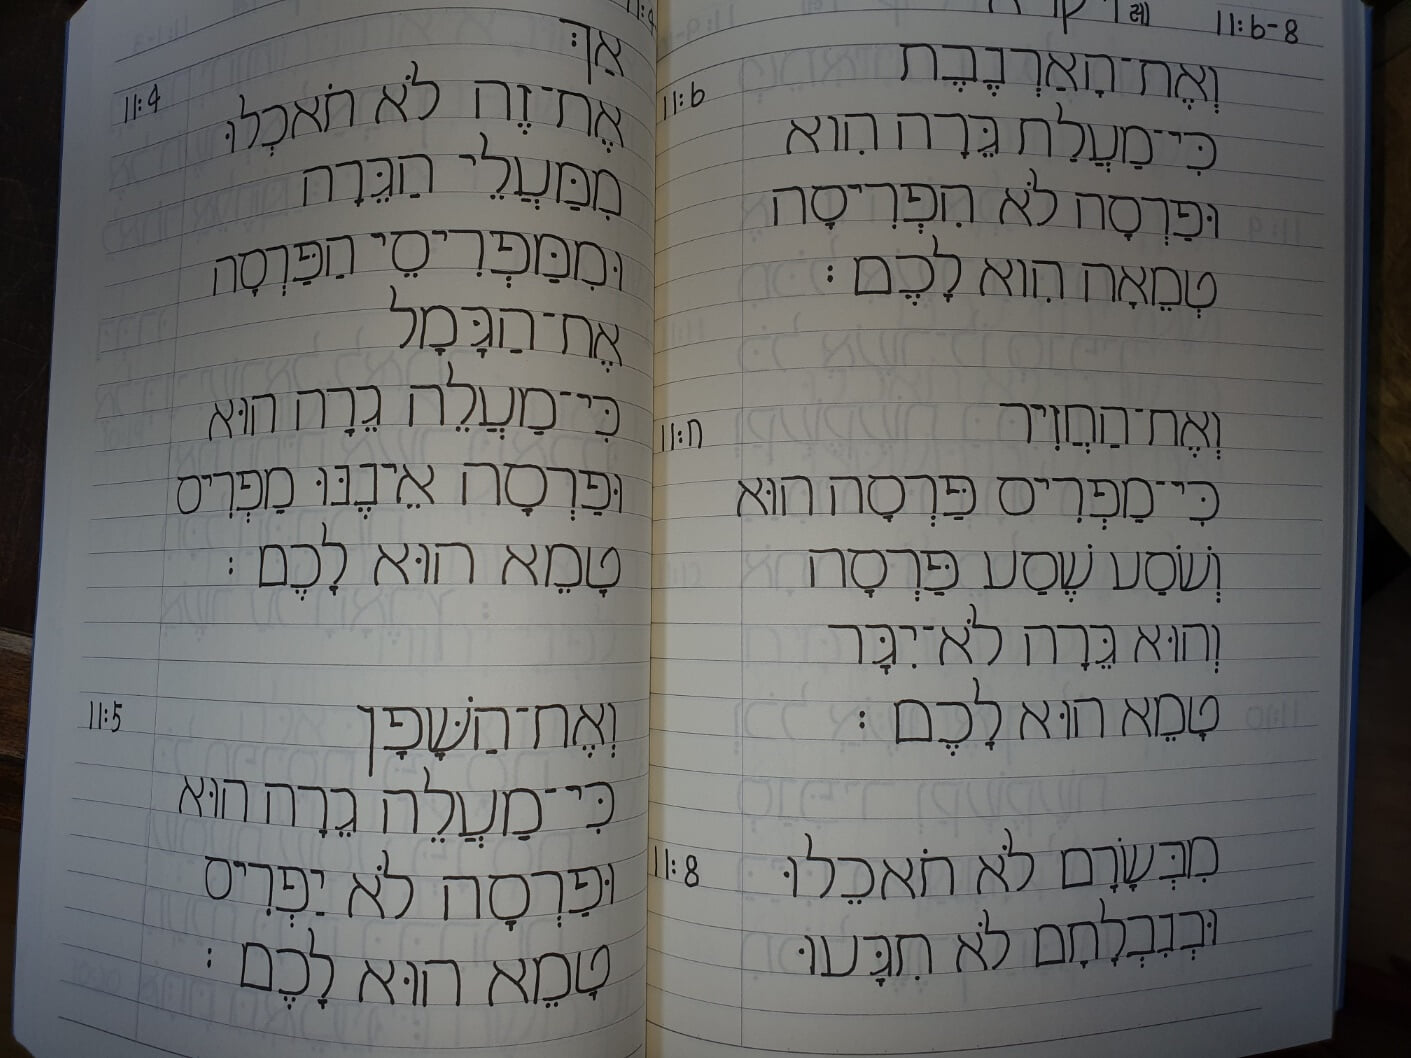 אַךְ׃
11:4 אֶת־זֶה לֹא תֹאכְלוּ
מִמַּעֲלֵי הַגֵּרָה
וּמִמַּפְרִיסֵי הַפַּרְסָה
אֶת־הַגָּמָל
כִּי־מַעֲלֵה גֵרָה הוּא
וּפַרְסָה אֵינֶנּוּ מַפְרִיס
טָמֵא הוּא לָכֶם׃
11:5 וְאֶת־הַשָּׁפָן
כִּי־מַעֲלֵה גֵרָה הוּא
וּפַרְסָה לֹא יַפְרִיס
טָמֵא הוּא לָכֶם׃
레 11:6-8
11:6 וְאֶת־הָאַרְנֶבֶת
כִּי־מַעֲלַת גֵּרָה הִוא
וּפַרְסָה לֹא הִפְרִיסָה
טְמֵאָה הִוא לָכֶם׃
11:7 וְאֶת־הַחֲזִיר
כִּי־מַפְרִיס פַּרְסָה הוּא
וְשֹׁסַע שֶׁסַע פַּרְסָה
וְהוּא גֵּרָה לֹא־יִגָּר
טָמֵא הוּא לָכֶם׃
11:8 מִבְּשָׂרָם לֹא תֹאכֵלוּ
וּבְנִבְלָתָם לֹא תִגָּעוּ